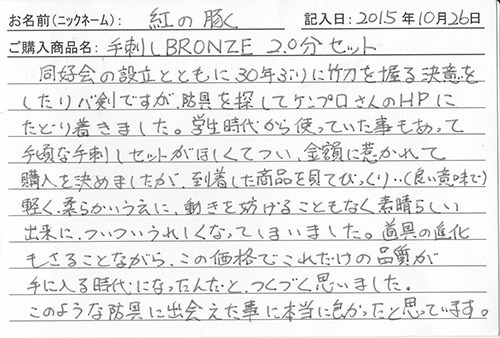 お名前(ニックネーム): 紅の豚く 記入日:2015年10月26日
ご購入商品名: 手刺しBRONZE 2.0分セット
同好会の設立とともに30年ぶりに竹刀を握る決意を
したリバ剣ですが、防具を探してケンプロさんのHPに
たどり着きました。学生時代から使っていた事もあって
手頃な手刺しセットがほしくてつい、金額に惹かれて
購入を決めましたが、到着した商品を見てびっくり‥(良い意味で)
軽く、柔らかいうえに、動きを妨げることもなく素晴らしい
出来に、ついついうれしくなってしまいました。道具の進化
もさることながら、この価格でこれだけの品質が
手に入る時代になったんだと、つくづく思いました。
このような防具に出会えた事に本当に良かったと思っています。